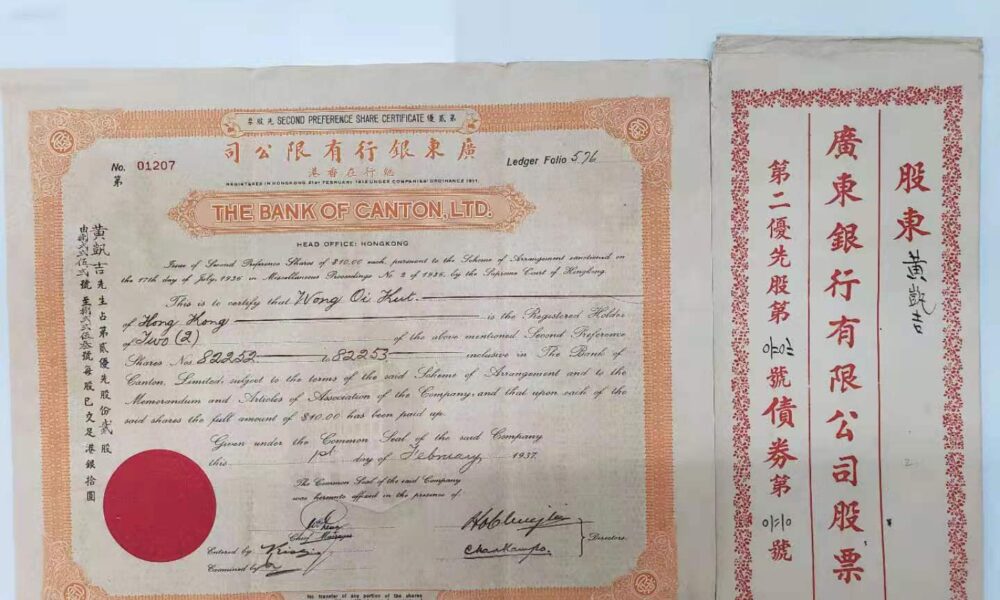 第貳優先股票
SECOND PREFERENCE SHARE CERTIFICATE
No. 01207
第
廣東銀行有限公司
Ledger Folio 576
總行在香港
REGISTERED IN HONGKONG 21ST FEBRUARY 1912 UNDER COMPANIES' ORDINANCE 1911.
THE BANK OF CANTON, LTD.
HEAD OFFICE: HONGKONG
Issue of Second Preference Shares of $10.00 each, pursuant to the Scheme of Arrangement sanctioned on
the 17th day of July, 1936 in Miscellaneous Proceedings No. 2 of 1936, by the Supreme Court of Hongkong.
This is to certify that Wong Oi Kut
of Hong Kong is the Registered Holder
of Two (2) of the above mentioned Second Preference
Shares Nos. 82252 82253 inclusive in The Bank of
Canton, Limited; subject to the terms of the said Scheme of Arrangement and to the
Memorandum and Articles of Association of the Company; and that upon each of the
said shares the full amount of $10.00 has been paid up.
Given under the Common Seal of the said Company
this 1st day of February, 1937.
The Common Seal of the said Company
was hereunto affixed in the presence of:
Chief Manager
Directors.
Entered by
Examined by
No transfer of any portion of the shares
黃凱吉先生占第貳優先股份貳股
由捌貳貳伍貳號至捌貳貳伍叁號每股已交足港銀拾圓
股東 黃凱吉
廣東銀行有限公司股票
第二優先股第 號債券第 號